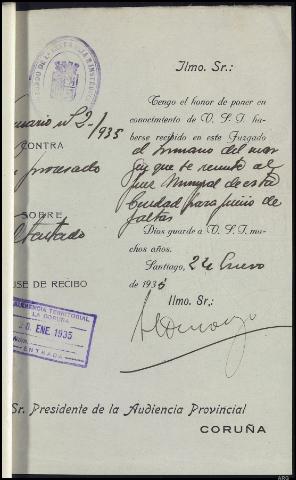 JUZGADO DE 
sumario nº 2-1935
CONTRA
procesado
SOBRE
Atentado
USE DE RECIBO
AUDIENCIA TERRITORIAL
LA CORUÑA
20. ENE. 1935
ENTRADA
Ilmo. Sr.:
Tengo el honor de poner en
conocimiento de V. S. I. ha-
berse recibido en este Juzgado
el sumario del mar
gen que se remite al
Juez Municipal de esta
Ciudad para juicio de
faltas
Dios guarde a V. S. I. mu-
chos años.
Santiago, 22 Enero
de 1935
Ilmo. Sr.:
Sr. Presidente de la Audiencia Provincial
CORUÑA
ARG